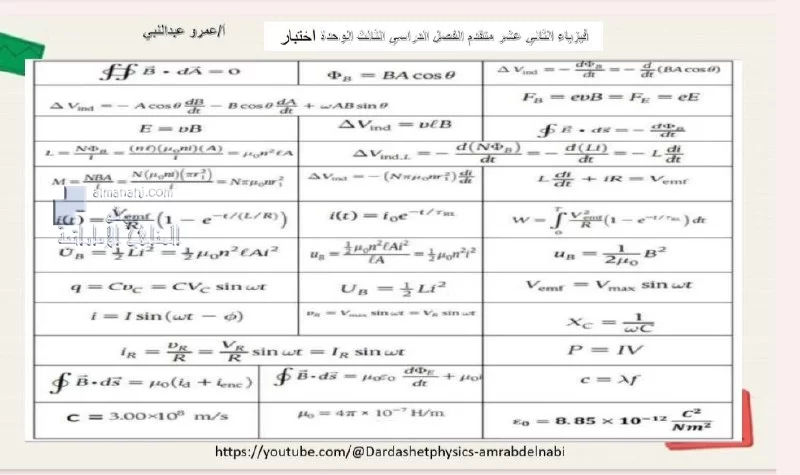 أ/عمرو عبدالنبي
فيزياء الثاني عشر متقدم الفصل الدراسي الثالث الوحدة اختبار
∯ B⃗ • dA⃗ = 0
Φ_B = BA cos θ
Δ V_ind = − dΦ_B/dt = − d/dt (BA cos θ)
Δ V_ind = − A cos θ dB/dt − B cos θ dA/dt + ωAB sin θ
F_B = evB = F_E = eE
E = vB
ΔV_ind = vℓB
∮ E⃗ • ds⃗ = − dΦ_B/dt
L = NΦ_B/i = (nℓ)(μ₀ni)(A)/i = μ₀n²ℓA
ΔV_ind,L = − d(NΦ_B)/dt = − d(Li)/dt = − L di/dt
M = NBA/i = N(μ₀ni)(πr₁²)/i = Nπμ₀nr₁²
ΔV_ind = − (Nπμ₀nr₁²) di/dt
L di/dt + iR = V_emf
almanahj.com
المناهج الإماراتية
i(t) = V_emf/R (1 − e^−t/(L/R))
i(t) = i₀e^−t/τ_RL
W = ∫₀ᵀ V²_emf/R (1 − e^−t/τ_RL) dt
U_B = ½ Li² = ½ μ₀n²ℓAi²
u_B = ½μ₀n²ℓAi²/ℓA = ½μ₀n²i²
u_B = 1/2μ₀ B²
q = Cv_C = CV_C sin ωt
U_B = ½ Li²
V_emf = V_max sin ωt
i = I sin(ωt − φ)
v_R = V_max sin ωt = V_R sin ωt
X_C = 1/ωC
i_R = v_R/R = V_R/R sin ωt = I_R sin ωt
P = IV
∮ B⃗•ds⃗ = μ₀(i_d + i_enc)
∮ B⃗•ds⃗ = μ₀ε₀ dΦ_E/dt + μ₀i
c = λf
c = 3.00×10⁸ m/s
μ₀ = 4π × 10⁻⁷ H/m
ε₀ = 8.85 × 10⁻¹² C²/Nm²
https://youtube.com/@Dardashetphysics-amrabdelnabi